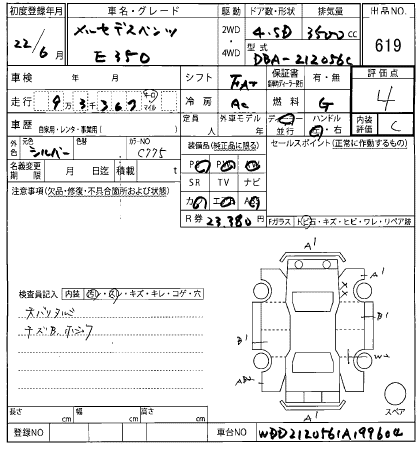 初度登録年月 車名・グレード 駆動 ドア数・形状 排気量 出品NO.
22/6月 メルセデスベンツ E350 2WD・4WD 4.5D 3500cc 619
型式 DBA-212056C
車検 年 月 シフト FAT 保証書 有・無 評価点
走行 9万3千367 km マイル 冷房 AC 燃料 G 4
車歴 自家用・レンタ・事業用( ) 定員 人 外車モデル 年 ディーラー・並行 ハンドル 左・右 内装評価 C
外色 元色 シルバー 色替 カラーNO C775 装備品(純正品に限る) セールスポイント(正常に作動するもの)
名義変更期限 月 日迄 積載 t PS PW AW
注意事項(欠品・修復・不具合箇所および状態) SR TV ナビ
カワ エアB ABS
R券 23,380円 Fガラス 石・キズ・ヒビ・ワレ・リペア跡
A1
A1
XX
検査員記入 内装 キズ・キレ・コゲ・穴
B1
B1
W2
A1
スペア
長さ cm 幅 cm 高さ cm
登録NO 車台NO WDD2120561A199604